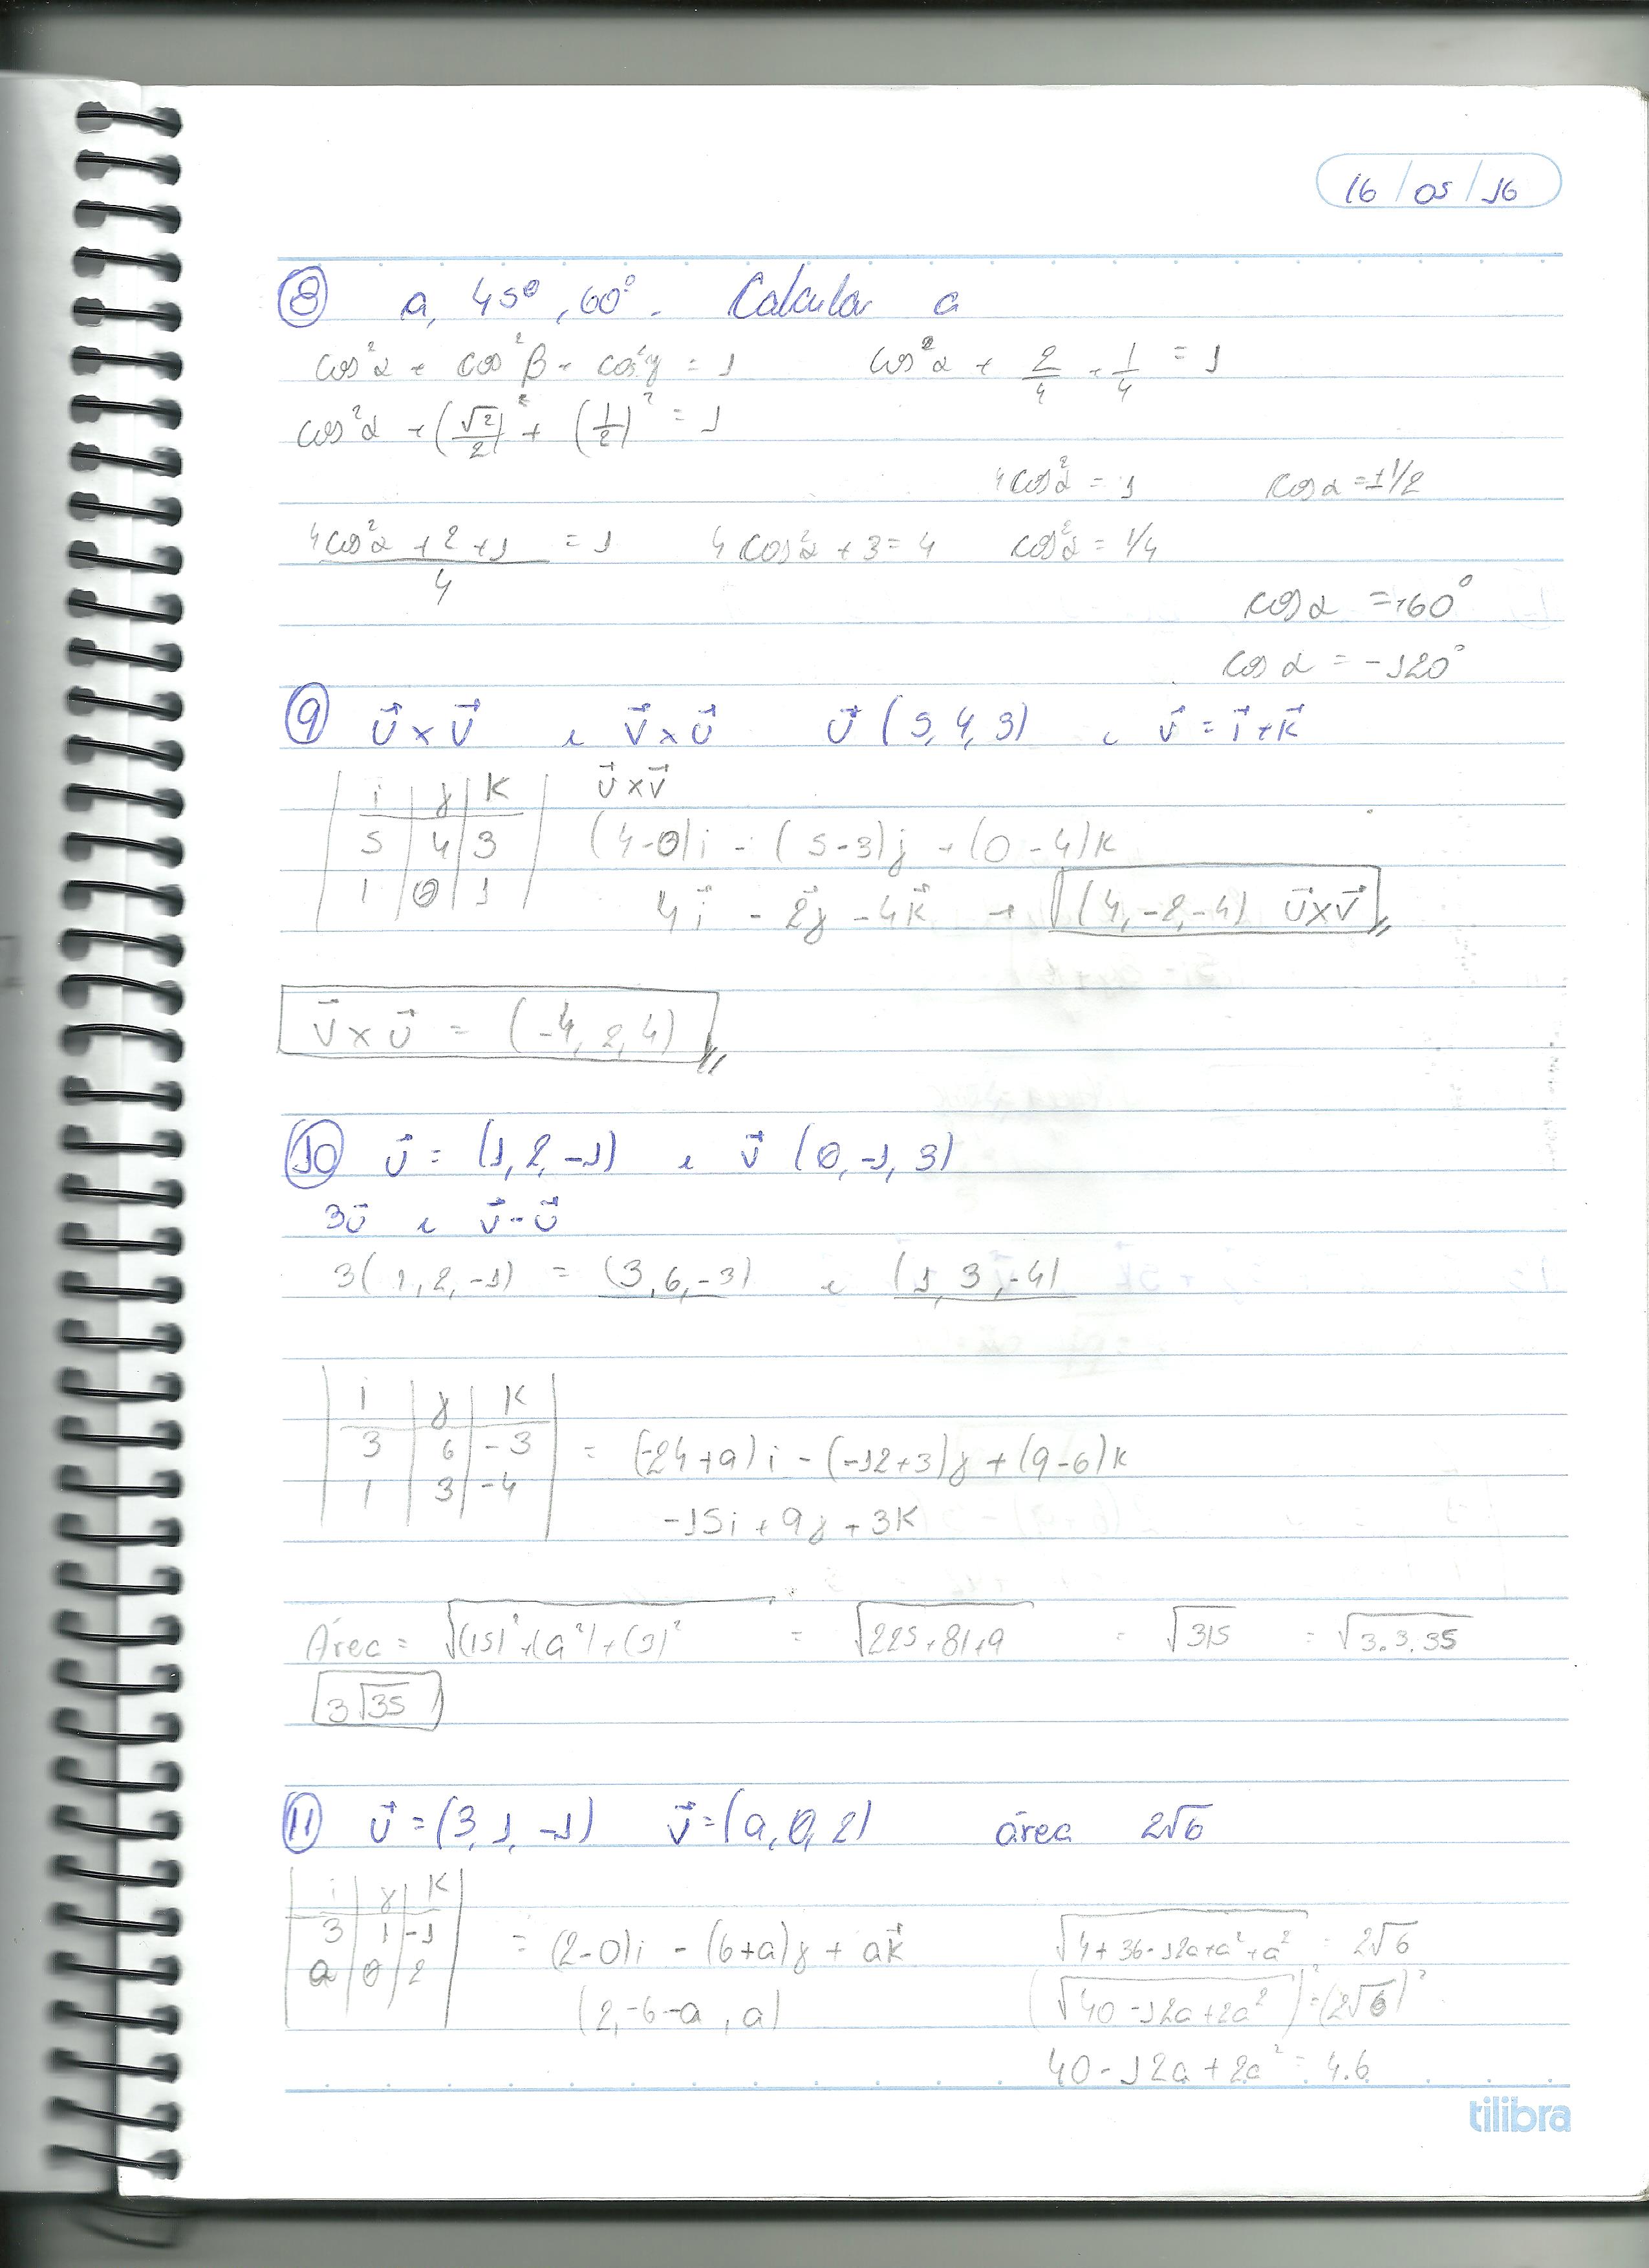 16 / 05 / 16
8 a, 45°, 60°. Calcular a
cos²α + cos²β + cos²γ = 1 cos²α + 2/4 + 1/4 = 1
cos²α + (√2/2)² + (1/2)² = 1
4cos²α = 1 cosα = ±1/2
(4cos²α + 2 + 1)/4 = 1 4cos²α + 3 = 4 cos²α = 1/4
cosα = +60°
cosα = -120°
9 u⃗ x v⃗ e v⃗ x u⃗ u⃗ (5, 4, 3) e v⃗ = i⃗ + k⃗
i j k u⃗ x v⃗
5 4 3 (4-0)i - (5-3)j + (0-4)k
1 0 1 4i⃗ - 2j⃗ - 4k⃗ → (4, -2, -4) u⃗ x v⃗
v⃗ x u⃗ = (-4, 2, 4)
10 u⃗ = (1, 2, -1) e v⃗ (0, -1, 3)
3u⃗ e v⃗ - u⃗
3(1, 2, -1) = (3, 6, -3) e (1, 3, -4)
i j k
3 6 -3 = (-24+9)i - (-12+3)j + (9-6)k
1 3 -4
-15i + 9j + 3k
Área = √(15)² + (9²) + (3)² = √225+81+9 = √315 = √3.3.35
3√35
11 u⃗ = (3, 1, -1) v⃗ = (a, 0, 2) área 2√6
i j k
3 1 -1 = (2-0)i - (6+a)j + ak⃗ √4+36-12a+a²+a² = 2√6
a 0 2
(2, -6-a, a) (√40-12a+2a²)² = (2√6)²
40-12a+2a² = 4.6
tilibra